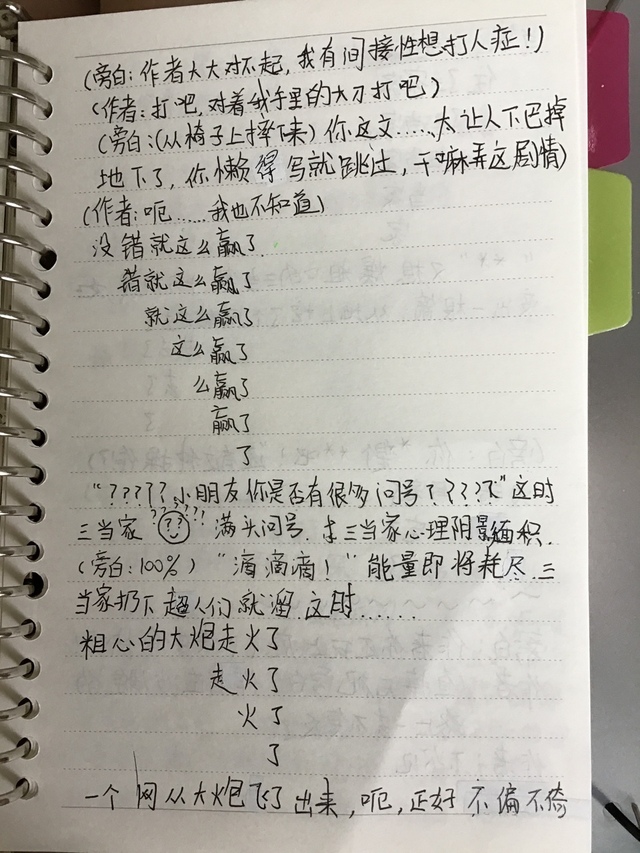 (旁白:作者大大对不起,我有间接性想打人症!)
(作者:打吧,对着我手里的大刀打吧)
(旁白:(从椅子上摔下来)你这文……太让人下巴掉
地下了,你懒得写就跳过,干嘛弄这剧情)
(作者:呃……我也不知道)
没错就这么赢了
错就这么赢了
就这么赢了
这么赢了
么赢了
赢了
了
“?????小朋友你是否有很多问号????”这时
三当家??????满头问号.求三当家心理阴影面积.
(旁白:100%)“滴滴滴!”能量即将耗尽.三
当家扔下超人们就溜这时……
粗心的大炮走火了
走火了
火了
了
一个网从大炮飞了出来,呃,正好不偏不倚